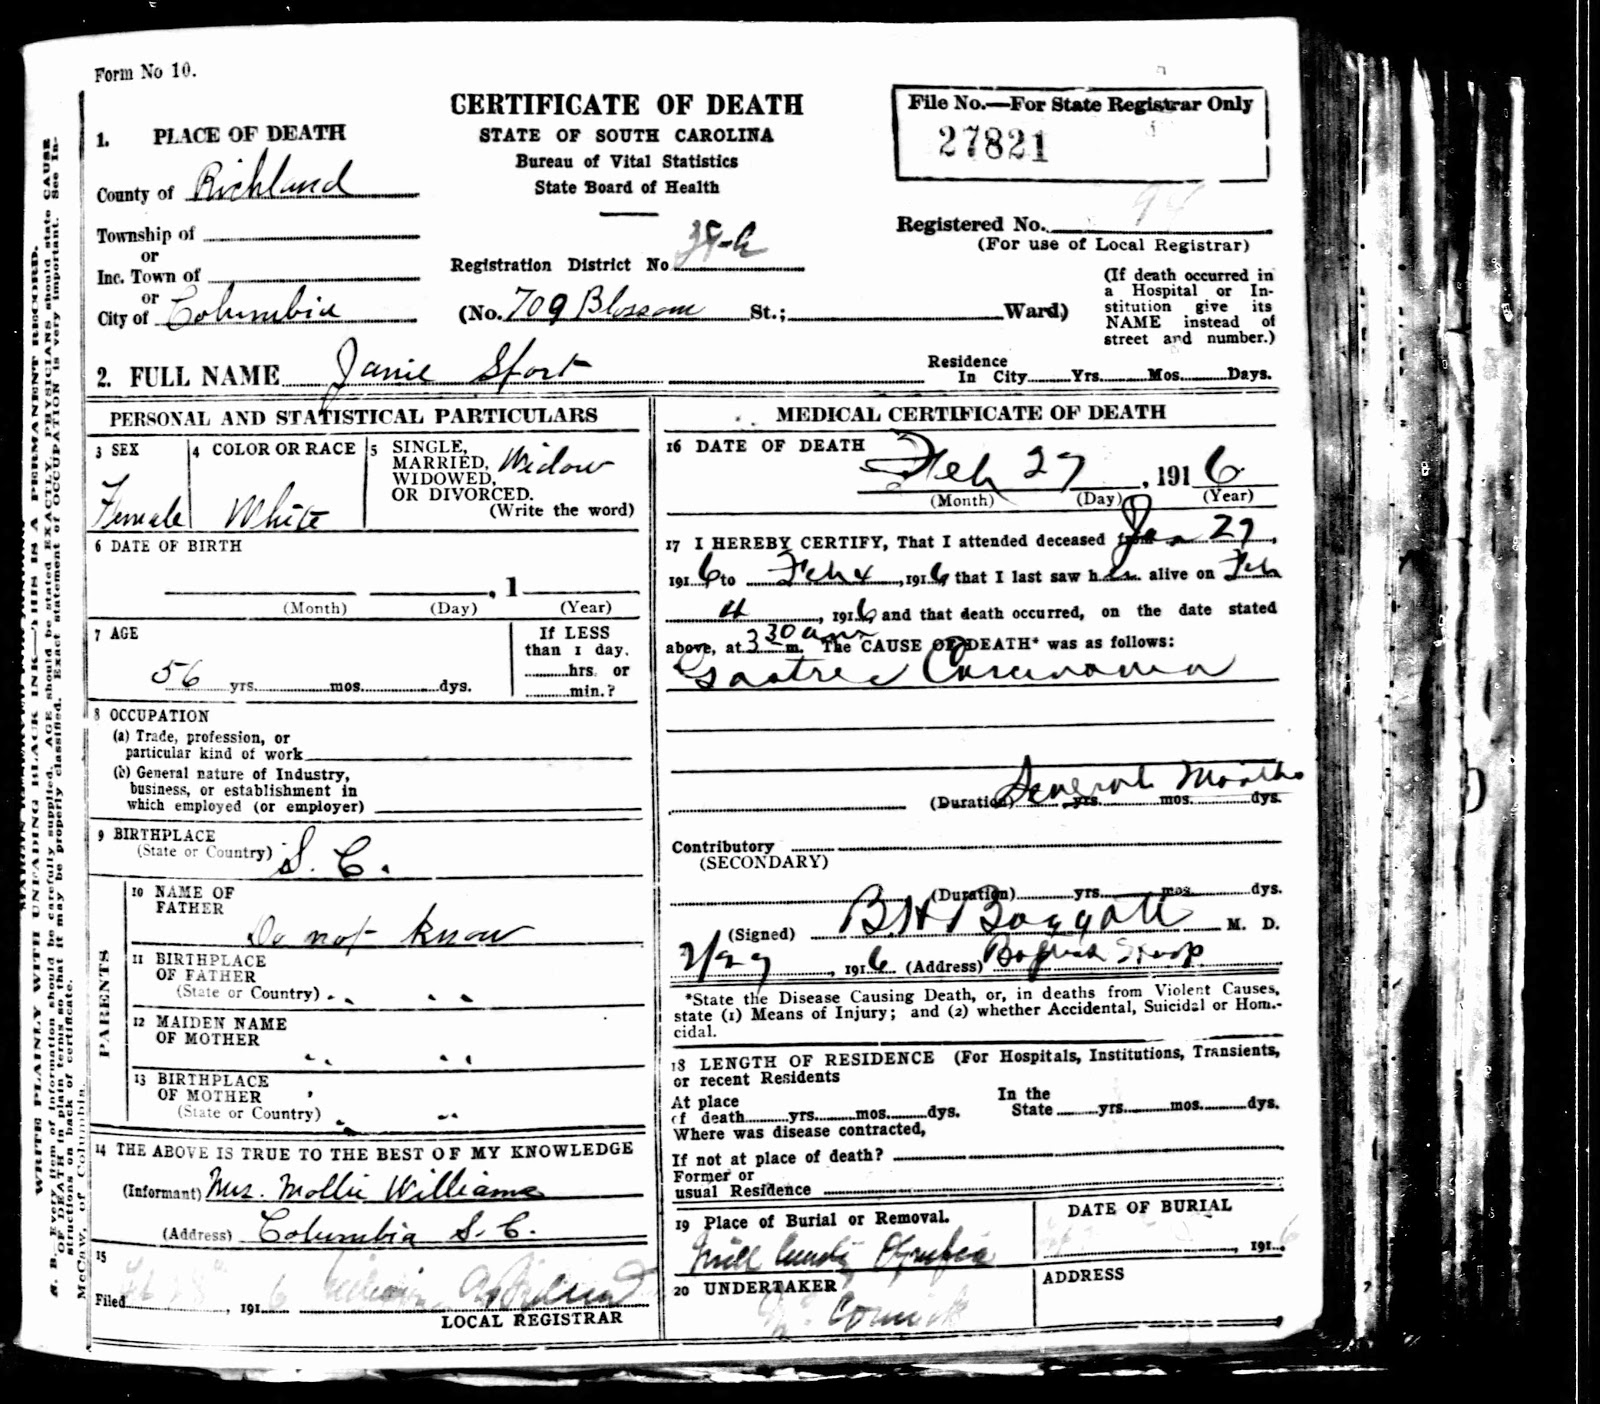 Form No 10.
CERTIFICATE OF DEATH
STATE OF SOUTH CAROLINA
Bureau of Vital Statistics
State Board of Health
File No.—For State Registrar Only
27821
1. PLACE OF DEATH
County of Richland
Township of
or
Inc. Town of
or
City of Columbia
Registration District No
(No. 709 Blossom St.; Ward)
Registered No.
(For use of Local Registrar)
(If death occurred in
a Hospital or In-
stitution give its
NAME instead of
street and number.)
2. FULL NAME Janie Sport
Residence
In City Yrs. Mos. Days.
PERSONAL AND STATISTICAL PARTICULARS
3 SEX
Female
4 COLOR OR RACE
White
5 SINGLE,
MARRIED,
WIDOWED,
OR DIVORCED.
(Write the word)
Widow
6 DATE OF BIRTH
, 1
(Month) (Day) (Year)
7 AGE
56 yrs. mos. dys.
If LESS
than 1 day.
hrs. or
min.?
8 OCCUPATION
(a) Trade, profession, or
particular kind of work
(b) General nature of Industry,
business, or establishment in
which employed (or employer)
9 BIRTHPLACE
(State or Country) S. C.
PARENTS
10 NAME OF
FATHER
Do not know
11 BIRTHPLACE
OF FATHER
(State or Country) " "
12 MAIDEN NAME
OF MOTHER
" "
13 BIRTHPLACE
OF MOTHER
(State or Country) " "
14 THE ABOVE IS TRUE TO THE BEST OF MY KNOWLEDGE
(Informant) Mrs. Mollie Williams
(Address) Columbia S. C.
15
Filed , 191 6
LOCAL REGISTRAR
MEDICAL CERTIFICATE OF DEATH
16 DATE OF DEATH
Feb 27, 1916
(Month) (Day) (Year)
17 I HEREBY CERTIFY, That I attended deceased from Jan 27,
1916 to Feb 4, 1916 that I last saw her alive on Feb
4, 1916 and that death occurred, on the date stated
above, at 3 30 am m. The CAUSE OF DEATH* was as follows:
Gastric Carcinoma
Several Months
(Duration) yrs. mos. dys.
Contributory
(SECONDARY)
(Duration) yrs. mos. dys.
(Signed) B H Baggott M. D.
2/29, 1916 (Address)
*State the Disease Causing Death, or, in deaths from Violent Causes,
state (1) Means of Injury; and (2) whether Accidental, Suicidal or Hom-
cidal.
18 LENGTH OF RESIDENCE (For Hospitals, Institutions, Transients,
or recent Residents
At place
of death yrs. mos. dys.
In the
State yrs. mos. dys.
Where was disease contracted,
If not at place of death?
Former or
usual Residence
19 Place of Burial or Removal.
Mill Olympia
DATE OF BURIAL
, 1916
20 UNDERTAKER
ADDRESS
WRITE PLAINLY WITH UNFADING BLACK INK—THIS IS A PERMANENT RECORD.
N. B.—Every item of information should be carefully supplied. AGE should be stated EXACTLY. PHYSICIANS should state CAUSE
OF DEATH in plain terms so that it may be properly classified. Exact statement of OCCUPATION is very important. See In-
structions on back of certificate.
McCaw, of Columbia.